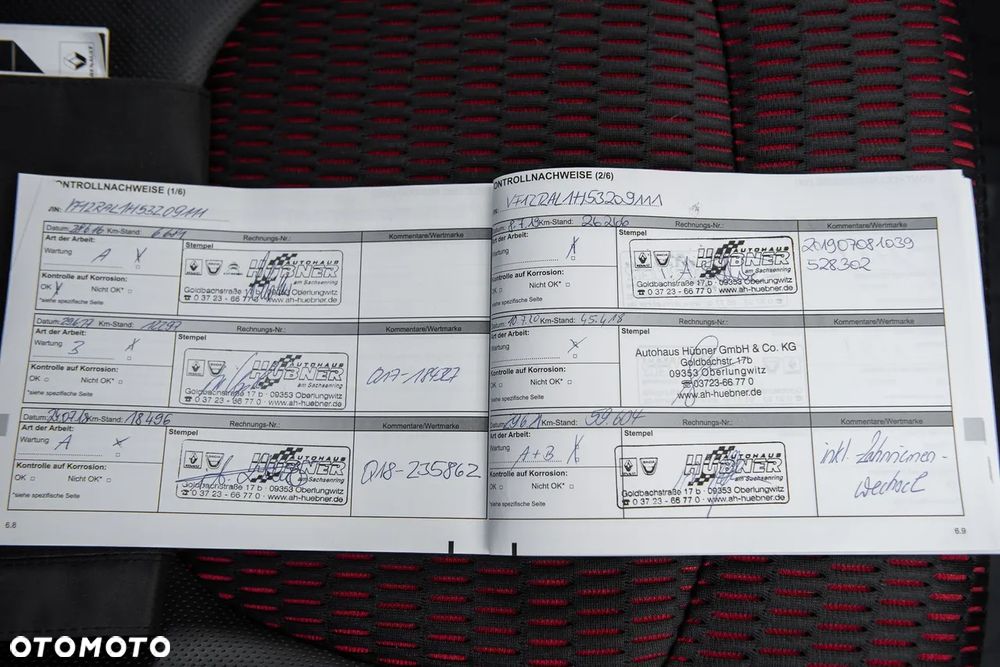 RENAULT
ONTROLLNACHWEISE (1/6)
VF1ZRAL1H53209111
Datum: 28.6.16 Km-Stand: 6.619 Rechnungs-Nr.: Kommentare/Wertmarke
Art der Arbeit: Stempel
Wartung A X
Kontrolle auf Korrosion:
OK Nicht OK*
*siehe spezifische Seite
AUTOHAUS
HÜBNER
am Sachsenring
Goldbachstraße 17 b · 09353 Oberlungwitz
☎ 0 37 23 - 66 77 0 · www.ah-huebner.de
Datum: 29.6.17 Km-Stand: Rechnungs-Nr.: Kommentare/Wertmarke
Art der Arbeit: Stempel
Wartung B X
Kontrolle auf Korrosion:
OK Nicht OK*
*siehe spezifische Seite
AUTOHAUS
HÜBNER
am Sachsenring
Goldbachstraße 17 b · 09353 Oberlungwitz
☎ 0 37 23 - 66 77 0 · www.ah-huebner.de
Datum: Km-Stand: 18496 Rechnungs-Nr.: Kommentare/Wertmarke
Art der Arbeit: Stempel
Wartung A X
Kontrolle auf Korrosion:
OK Nicht OK*
*siehe spezifische Seite
AUTOHAUS
HÜBNER
am Sachsenring
Goldbachstraße 17 b · 09353 Oberlungwitz
☎ 0 37 23 - 66 77 0 · www.ah-huebner.de
Q18-235862
6.8
ONTROLLNACHWEISE (2/6)
VF1ZRAL1H53209111
8.7.19 Km-Stand: 26266 Rechnungs-Nr.: Kommentare/Wertmarke
Art der Arbeit: Stempel
Wartung X
Kontrolle auf Korrosion:
OK Nicht OK*
*siehe spezifische Seite
AUTOHAUS
HÜBNER
am Sachsenring
Goldbachstraße 17 b · 09353 Oberlungwitz
☎ 0 37 23 - 66 77 0 · www.ah-huebner.de
201907081039
528302
Datum: 10.7.20 Km-Stand: 45.418 Rechnungs-Nr.: Kommentare/Wertmarke
Art der Arbeit: Stempel
Wartung X
Kontrolle auf Korrosion:
OK Nicht OK*
*siehe spezifische Seite
Autohaus Hübner GmbH & Co. KG
Goldbachstr. 17b
09353 Oberlungwitz
☎03723-66 77 0
www.ah-huebner.de
Datum: 29.6.21 Km-Stand: 59.604 Rechnungs-Nr.: Kommentare/Wertmarke
Art der Arbeit: Stempel
Wartung A+B X
Kontrolle auf Korrosion:
OK Nicht OK*
*siehe spezifische Seite
AUTOHAUS
HÜBNER
am Sachsenring
Goldbachstraße 17 b · 09353 Oberlungwitz
☎ 0 37 23 - 66 77 0 · www.ah-huebner.de
inkl. Zahnriemen-
wechsel
6.9
OTOMOTO